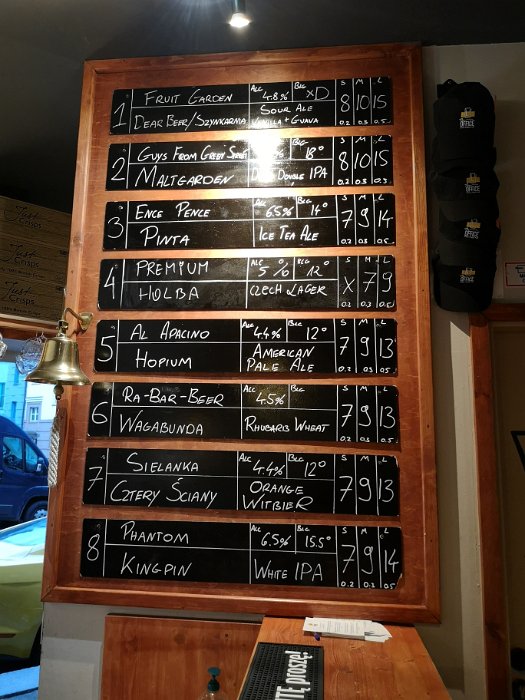 1 FRUIT GARDEN ALC 4.8% BLG XD S M L
DEAR BEER/SZYNKARNIA SOUR ALE VANILLA + GUAVA 8 10 15
0.2 0.3 0.5
2 GUYS FROM GREEN STREET 18° S M L
MALTGARDEN DOUBLE IPA 8 10 15
0.2 0.3 0.5
3 ENCE PENCE ALC 6.5% BLG 14° S M L
PINTA ICE TEA ALE 7 9 14
0.2 0.3 0.5
4 PREMIUM ALC 5% BLG 12° S M L
HOLBA CZECH LAGER X 7 9
0.2 0.3 0.5
5 AL APACINO ALC 4.4% BLG 12° S M L
HOPIUM AMERICAN PALE ALE 7 9 13
0.2 0.3 0.5
6 RA-BAR-BEER ALC 4.5% BLG S M L
WAGABUNDA RHUBARB WHEAT 7 9 13
0.2 0.3 0.5
7 SIELANKA ALC 4.4% BLG 12° S M L
CZTERY ŚCIANY ORANGE WITBIER 7 9 13
8 PHANTOM ALC 6.5% BLG 15.5° S M L
KINGPIN WHITE IPA 7 9 14
0.2 0.3 0.5
Just Crisps
Just Crisps
OFFICE
OFFICE
proszę!